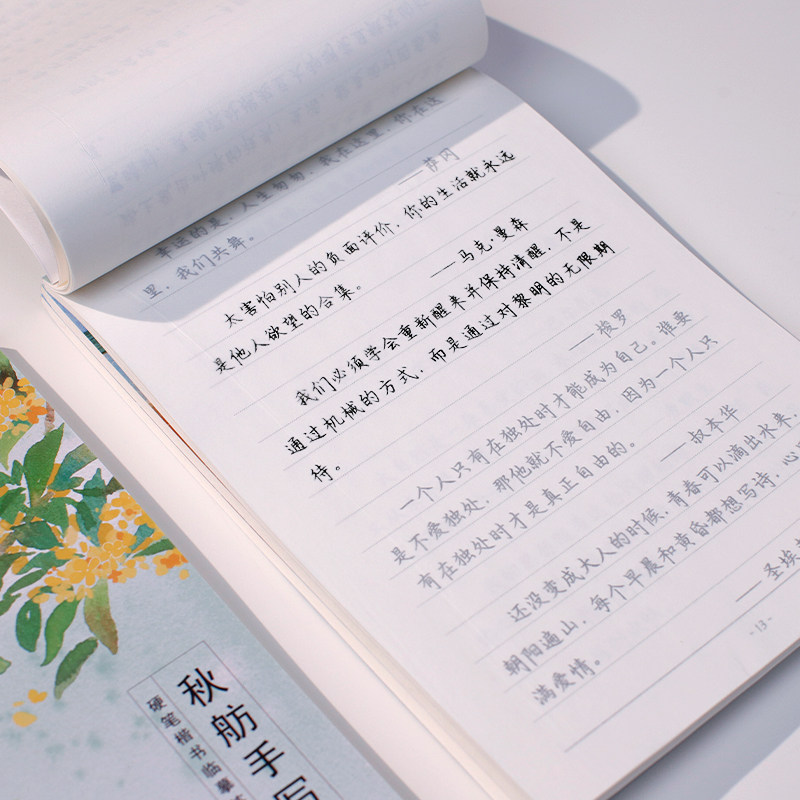 幸运的是，人生匆匆，我在这里，你在这
里，我们共舞。
——萨冈
太害怕别人的负面评价，你的生活就永远
是他人欲望的合集。
——马克·曼森
我们必须学会重新醒来并保持清醒，不是
通过机械的方式，而是通过对黎明的无限期
待。
——梭罗
一个人只有在独处时才能成为自己。谁要
是不爱独处，那他就不爱自由，因为一个人只
有在独处时才是真正自由的。
——叔本华
还没变成大人的时候，青春可以滴出水来，
朝阳遍山，每个早晨和黄昏都想写诗，心
满爱情。
——圣埃
-13-
秋舫手写
硬笔楷书临摹